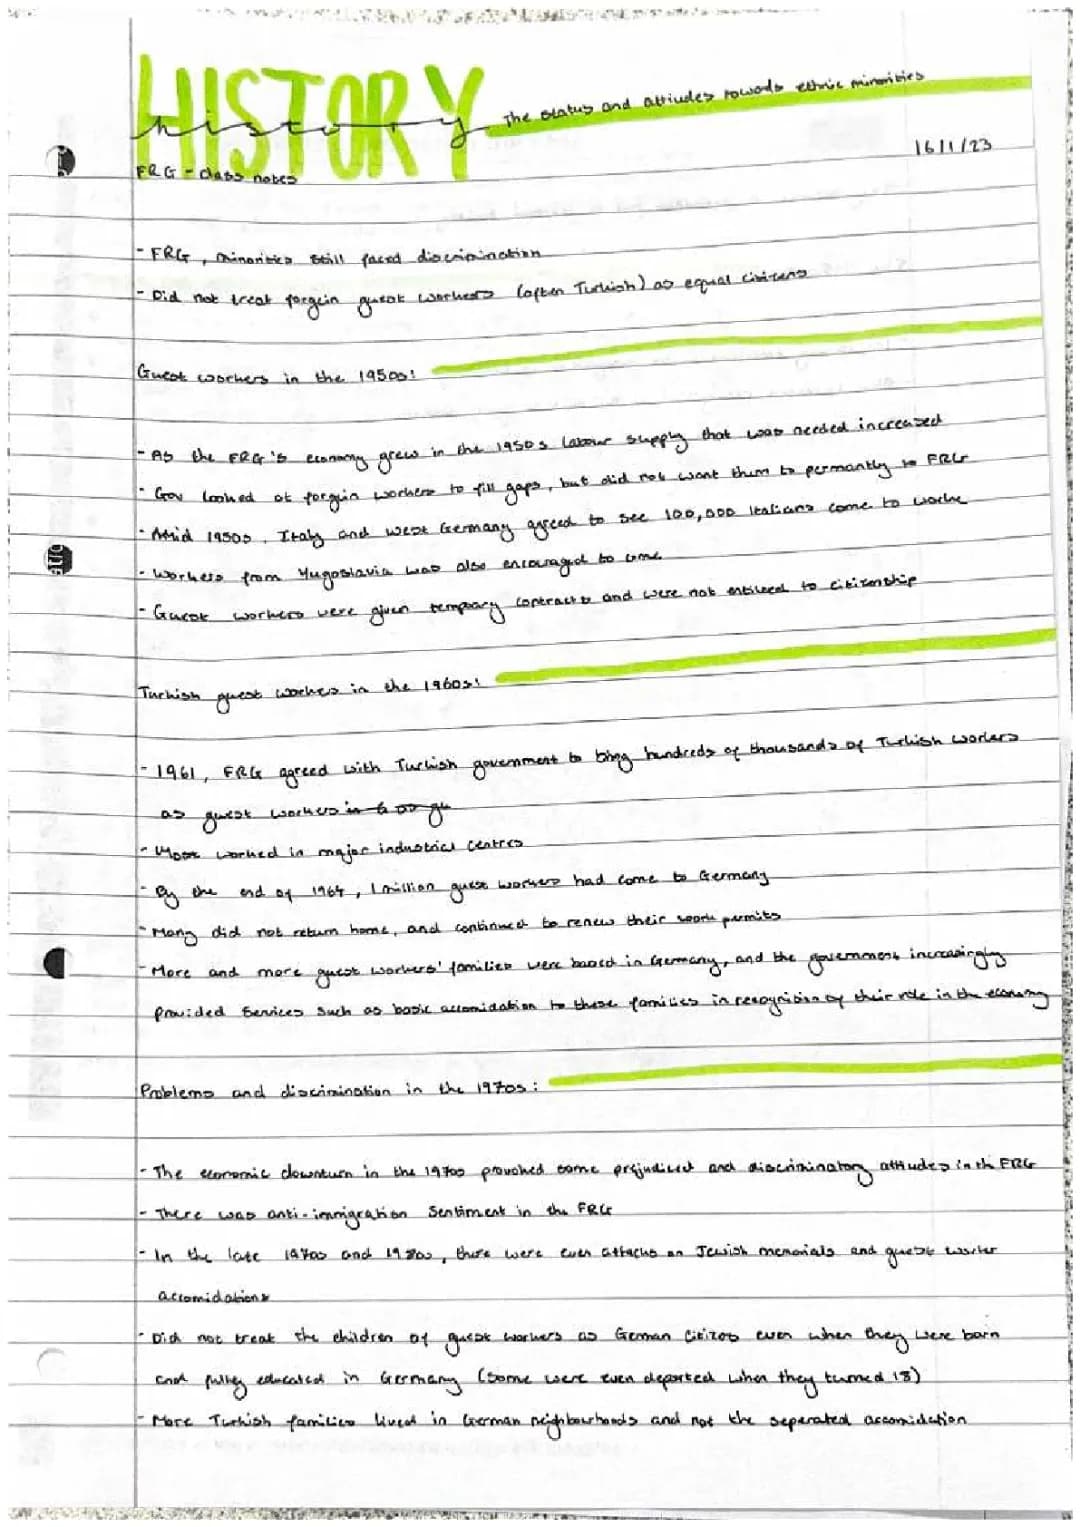 HISTORY
history
The status and attiudes towards ethnic minorities
16/1/23
FRG - class notes
- FRG, minorities still faced discrimination
- Did not treat forgein guest workers (often Turkish) as equal citizens
Guest workers in the 1950s:
- As the FRG's economy grew in the 1950s labour supply that was needed increased
- Gov looked at forguin workers to fill gaps, but did not want them to permantly to FRG
- Mid 1950s, Italy and West Germany agreed to see 100,000 Italians come to worke
- Workers from Yugoslavia was also encouraged to come
- Guest workers were given tempoary contracts and were not entiteed to citizenship
Turkish guest workers in the 1960s:
- 1961, FRG agreed with Turkish government to bring hundreds of thousands of Turkish workers
as guest workers in 6 as gu
- Most worked in major industrial centres
- By the end of 1964, 1 million guest workers had come to Germany
- Many did not return home, and continued to renew their work permits
- More and more guest workers' families were based in Germany, and the government increasingly
provided services such as basic accomidation to these families in recognition of their role in the economy
Problems and discrimination in the 1970s:
- The economic downturn in the 1970s provoked some prejudiced and discriminatory attitudes in th FRG
- There was anti-immigration sentiment in the FRG
- In the late 1970s and 1980s, there were even attacks on Jewish memorials and guest worker
accomidations
- Did not treat the children of guest workers as German citizes even when they were born
and fulley educated in Germany (some were even deported when they turned 18)
- More Turkish families lived in German neighbourhoods and not the seperated accomidation